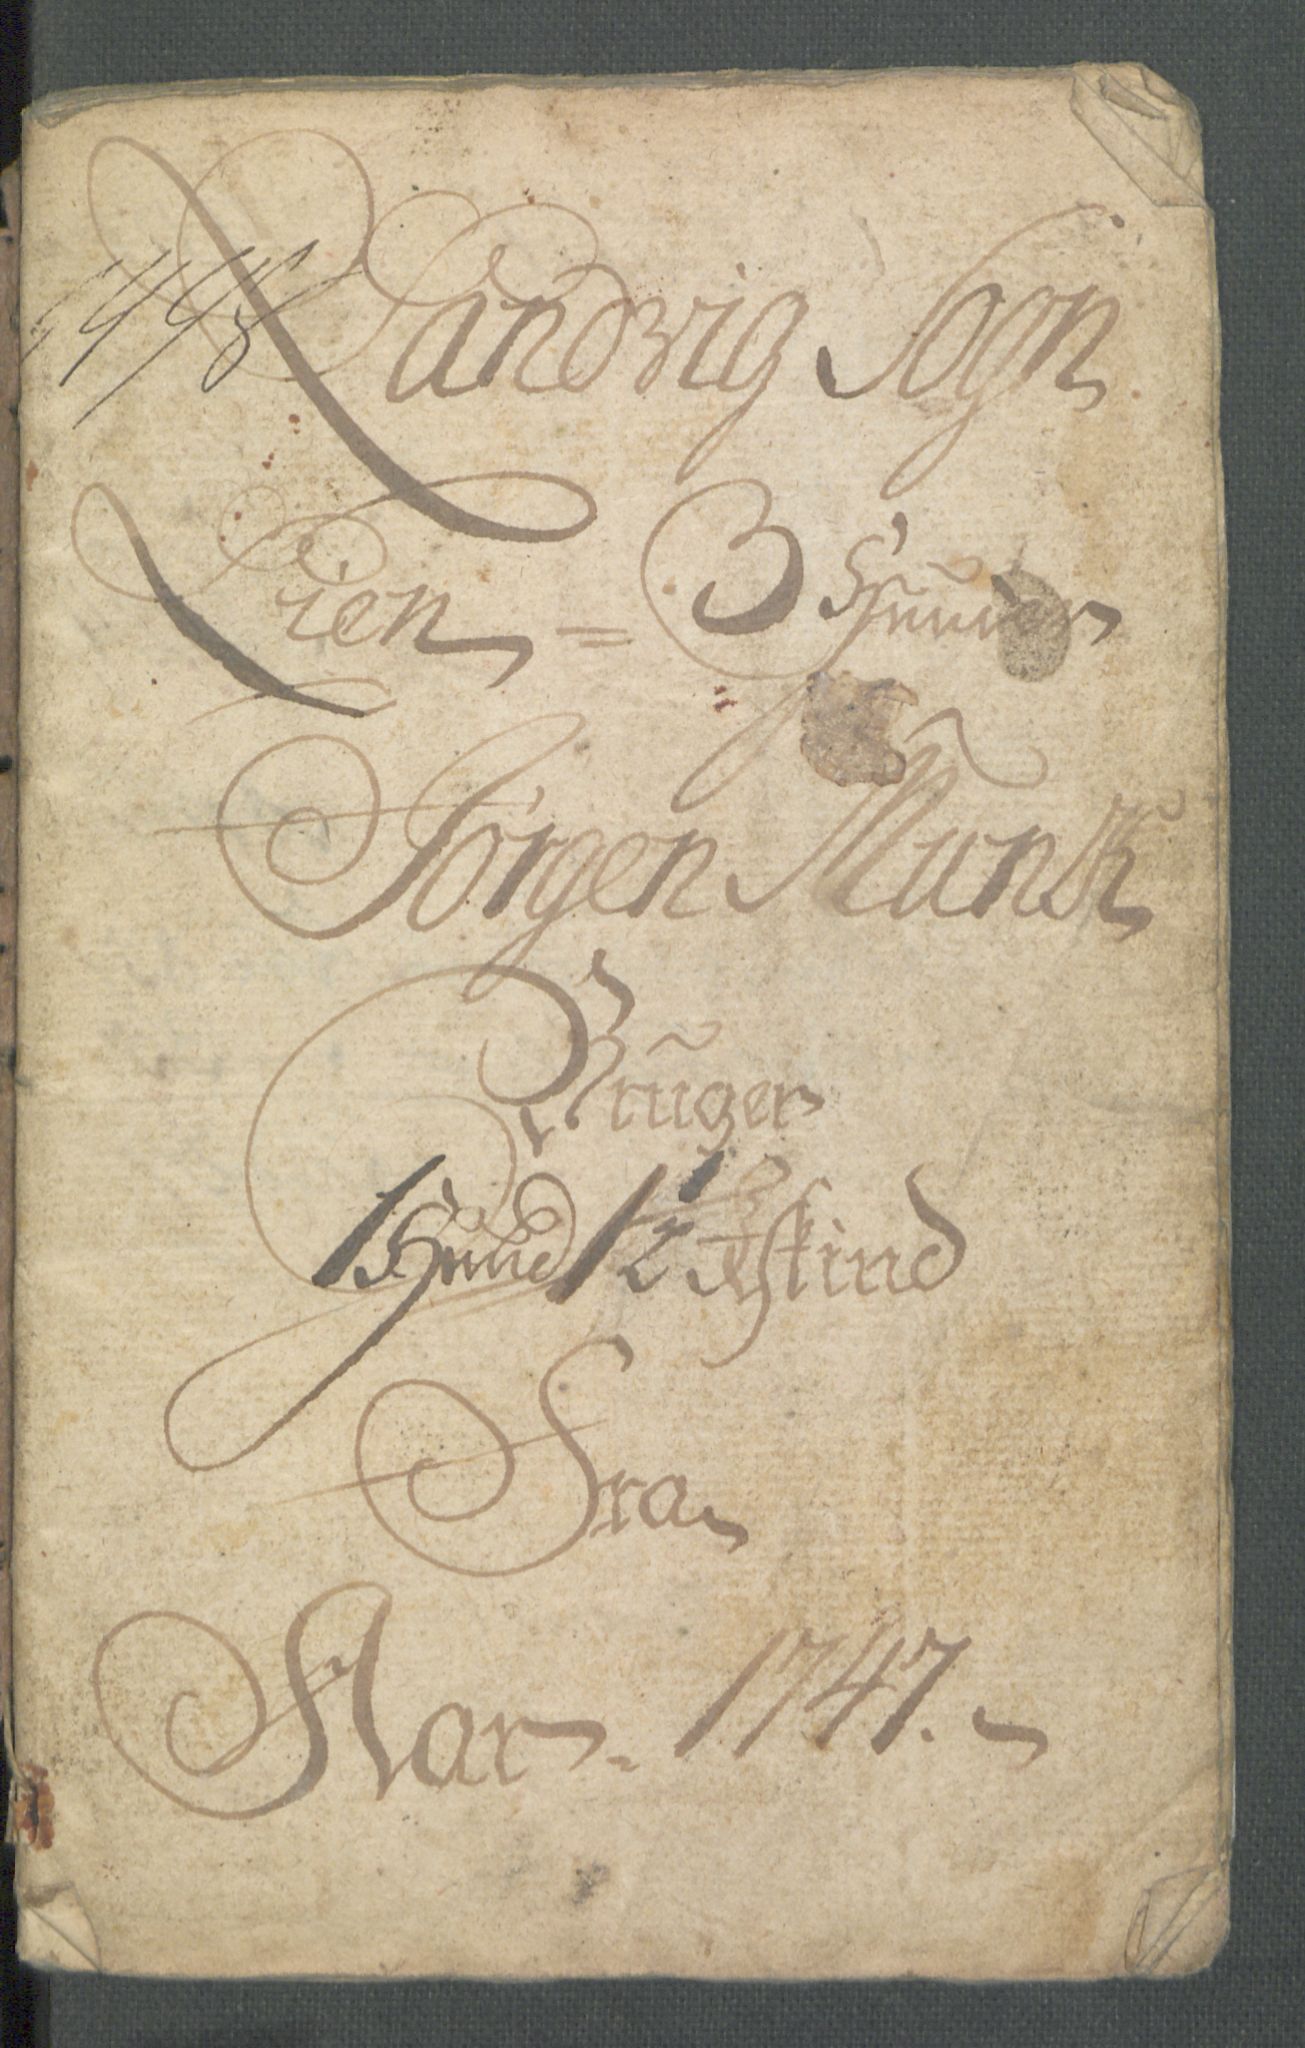 1748
Landvig Sogn
Lien = 3 Huuder
Jörgen Munk
Brüger
1 Huud 1½
Fra
Aar. 1747.